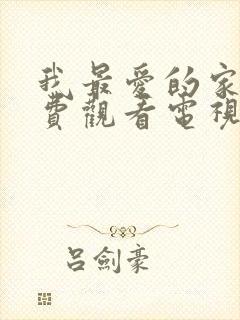 我最愛的家
費觀看電視
呂劍豪